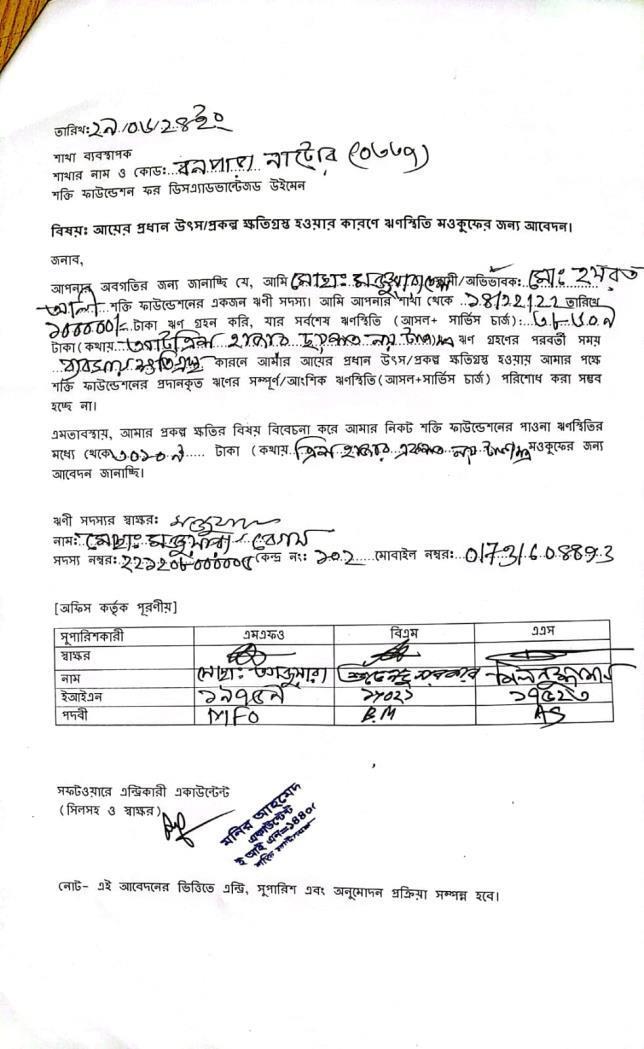 তারিখ:
শাখা ব্যবস্থাপক
শাখার নাম ও কোড: বনপাড়া নাটোর (০৬৬৭)
শক্তি ফাউন্ডেশন ফর ডিসএ্যাডভান্টেজড উইমেন
বিষয়: আয়ের প্রধান উৎস/প্রকল্প ক্ষতিগ্রস্থ হওয়ার কারণে ঋণস্থিতি মওকুফের জন্য আবেদন।
জনাব,
আপনার অবগতির জন্য জানাচ্ছি যে, আমি মোছাঃ মঞ্জুয়ারা স্বামী/অভিভাবক: মোঃ হযরত
আলী শক্তি ফাউন্ডেশনের একজন ঋণী সদস্য। আমি আপনার শাখা থেকে ১৪/১২/২২ তারিখে
১০০০০০/= টাকা ঋণ গ্রহন করি, যার সর্বশেষ ঋণস্থিতি (আসল+ সার্ভিস চার্জ): ৩৮৬০৯
টাকা (কথায়) আটত্রিশ হাজার ছয়শত নয় টাকা ঋণ গ্রহণের পরবর্তী সময়
ব্যবসায় ক্ষতিগ্রস্থ কারনে আমার আয়ের প্রধান উৎস/প্রকল্প ক্ষতিগ্রস্থ হওয়ায় আমার পক্ষে
শক্তি ফাউন্ডেশনের প্রদানকৃত ঋণের সম্পূর্ণ/আংশিক ঋণস্থিতি(আসল+সার্ভিস চার্জ) পরিশোধ করা সম্ভব
হচ্ছে না।
এমতাবস্থায়, আমার প্রকল্প ক্ষতির বিষয় বিবেচনা করে আমার নিকট শক্তি ফাউন্ডেশনের পাওনা ঋণস্থিতির
মধ্যে থেকে ৩০১০৯ টাকা (কথায়) ত্রিশ হাজার একশত নয় টাকা মওকুফের জন্য
আবেদন জানাচ্ছি।
ঋণী সদস্যের স্বাক্ষর:
নাম: মোছাঃ মঞ্জুয়ারা বেগম
সদস্য নম্বর: কেন্দ্র নং: ১০২ মোবাইল নম্বর:
[অফিস কর্তৃক পূরণীয়]
সুপারিশকারী এমএফও বিএম এএস
স্বাক্ষর
নাম মোছাঃ
ইআইএন ১৯৭৫৯ ১৮০২১ ১৭৫২৩
পদবী MFO B.M AS
সফটওয়ারে এন্ট্রিকারী একাউন্টেন্ট
(সিলসহ ও স্বাক্ষর)
মনির আহমেদ
একাউন্টেন্ট
নোট- এই আবেদনের ভিত্তিতে এন্ট্রি, সুপারিশ এবং অনুমোদন প্রক্রিয়া সম্পন্ন হবে।